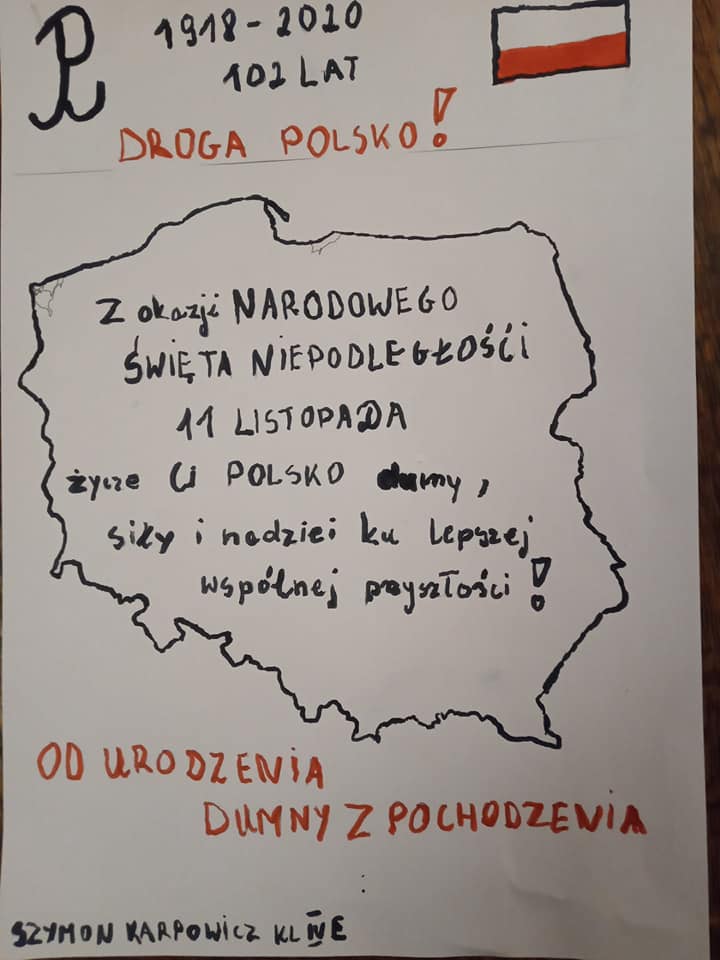 1918-2020
102 LAT
DROGA POLSKO!
Z okazji NARODOWEGO
ŚWIĘTA NIEPODLEGŁOŚĆI
11 LISTOPADA
życze Ci POLSKO dumy,
siły i nadziei ku lepszej
wspólnej przyszłości!
OD URODZENIA
DUMNY Z POCHODZENIA
SZYMON KARPOWICZ KL IV E